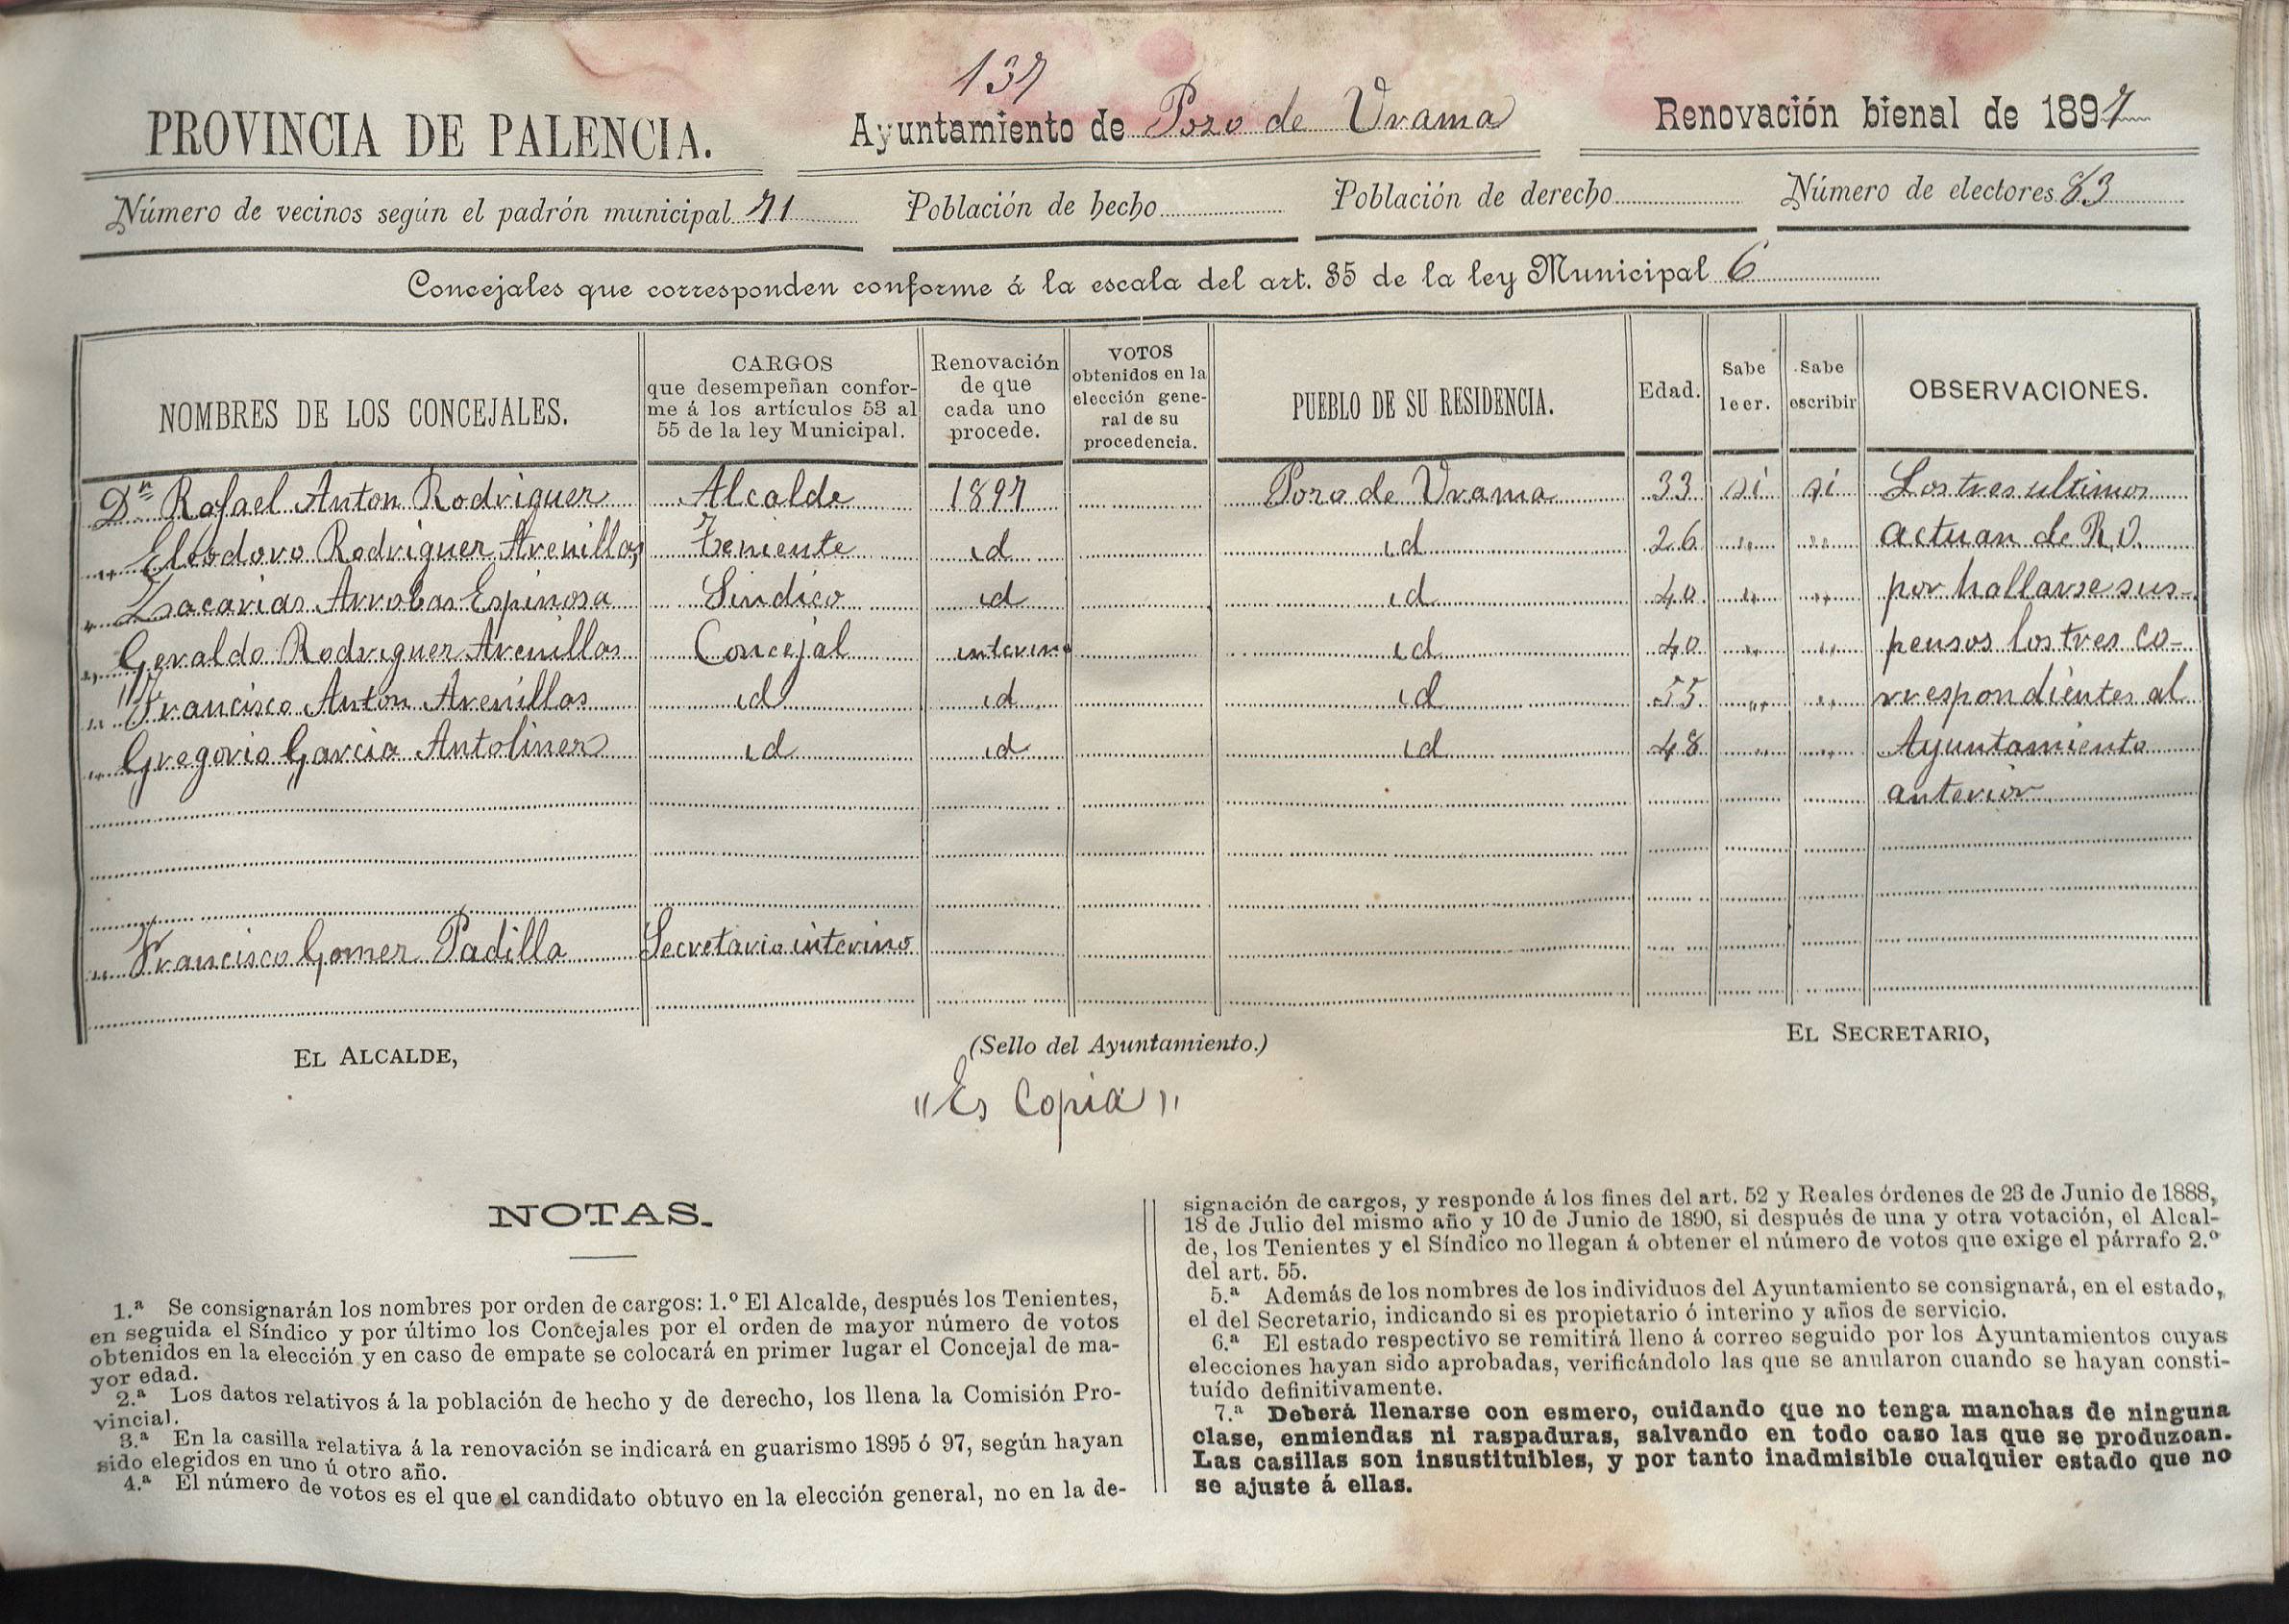 137
PROVINCIA DE PALENCIA. Ayuntamiento de Pozo de Urama Renovación bienal de 1897
Número de vecinos según el padrón municipal 71 Población de hecho Población de derecho Número de electores 83
Concejales que corresponden conforme á la escala del art. 35 de la ley Municipal 6
NOMBRES DE LOS CONCEJALES.
CARGOS
que desempeñan confor-
me á los artículos 53 al
55 de la ley Municipal.
Renovación
de que
cada uno
procede.
VOTOS
obtenidos en la
elección gene-
ral de su
procedencia.
PUEBLO DE SU RESIDENCIA.
Edad.
Sabe
leer.
Sabe
escribir
OBSERVACIONES.
Dn Rafael Anton Rodriguez Alcalde 1897 Pozo de Urama 33 si si Los tres ultimos
„ Eleodoro Rodriguez Arenillas Teniente id id 26 „ „ actuan de R.O.
„ Zacarias Arrobas Espinosa Sindico id id 40 „ „ por hallarse sus-
„ Geraldo Rodriguez Arenillas Concejal interino id 40 „ „ pensos los tres co-
„ Francisco Anton Arenillas id id id 55 „ „ rrespondientes al
„ Gregorio Garcia Antolinez id id id 48 „ „ Ayuntamiento
anterior
„ Francisco Gomez Padilla Secretario interino
EL ALCALDE, (Sello del Ayuntamiento.) EL SECRETARIO,
"Es Copia"
NOTAS.
1.ª Se consignarán los nombres por orden de cargos: 1.º El Alcalde, después los Tenientes,
en seguida el Síndico y por último los Concejales por el orden de mayor número de votos
obtenidos en la elección y en caso de empate se colocará en primer lugar el Concejal de ma-
yor edad.
2.ª Los datos relativos á la población de hecho y de derecho, los llena la Comisión Pro-
vincial.
3.ª En la casilla relativa á la renovación se indicará en guarismo 1895 ó 97, según hayan
sido elegidos en uno ú otro año.
4.ª El número de votos es el que el candidato obtuvo en la elección general, no en la de-
signación de cargos, y responde á los fines del art. 52 y Reales órdenes de 23 de Junio de 1888,
18 de Julio del mismo año y 10 de Junio de 1890, si después de una y otra votación, el Alcal-
de, los Tenientes y el Síndico no llegan á obtener el número de votos que exige el párrafo 2.º
del art. 55.
5.ª Además de los nombres de los individuos del Ayuntamiento se consignará, en el estado,
el del Secretario, indicando si es propietario ó interino y años de servicio.
6.ª El estado respectivo se remitirá lleno á correo seguido por los Ayuntamientos cuyas
elecciones hayan sido aprobadas, verificándolo las que se anularon cuando se hayan consti-
tuído definitivamente.
7.ª Deberá llenarse con esmero, cuidando que no tenga manchas de ninguna
clase, enmiendas ni raspaduras, salvando en todo caso las que se produzcan.
Las casillas son insustituibles, y por tanto inadmisible cualquier estado que no
se ajuste á ellas.